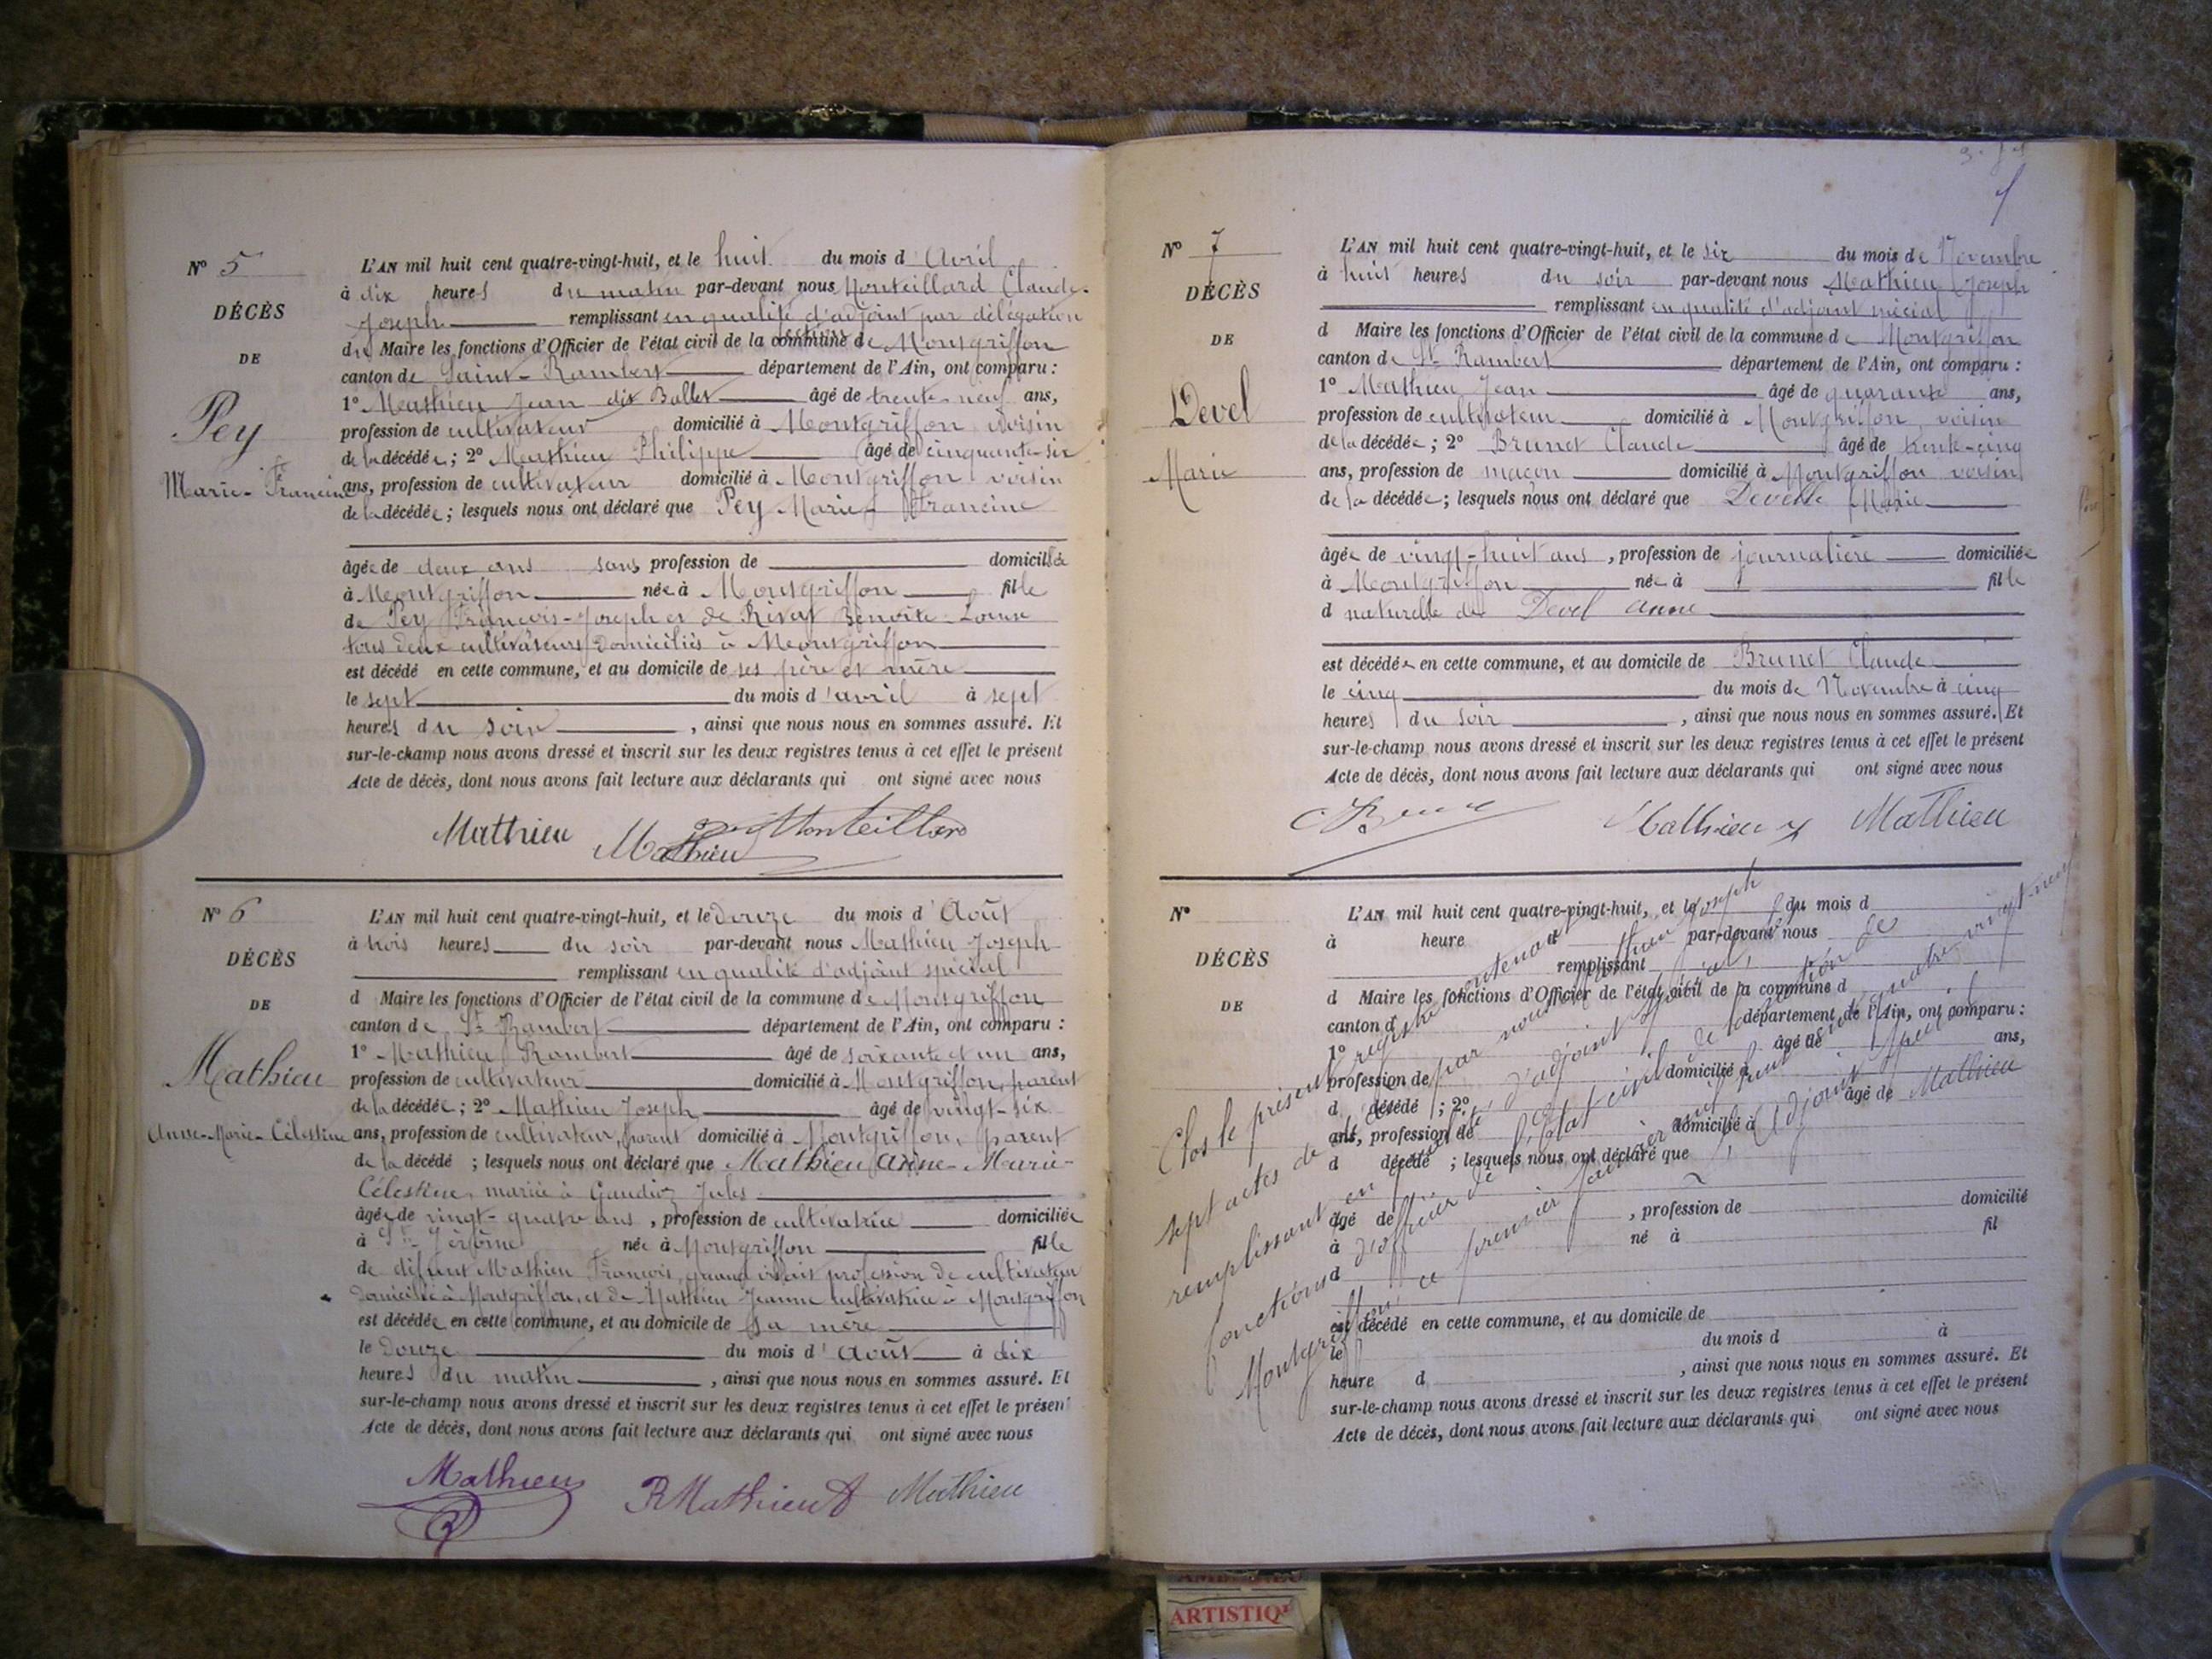 N° 5
DÉCÈS
DE
Pey
Marie-Francine
L'AN mil huit cent quatre-vingt-huit, et le huit du mois d'Avril
à dix heures du matin par-devant nous Monteillard Claude-
Joseph remplissant en qualité d'adjoint par délégation
du Maire les fonctions d'Officier de l'état civil de la commune section de Montgriffon
canton de Saint-Rambert département de l'Ain, ont comparu :
1° Mathieu Jean dit Ballet âgé de trente-neuf ans,
profession de cultivateur domicilié à Montgriffon voisin
de la décédée ; 2° Mathieu Philippe âgé de cinquante-six
ans, profession de cultivateur domicilié à Montgriffon voisin
de la décédée ; lesquels nous ont déclaré que Pey Marie-Francine
âgée de deux ans sans profession de domiciliée
à Montgriffon née à Montgriffon fille
de Pey François-Joseph et de Rivat Benoite-Louise
tous deux cultivateurs domiciliés à Montgriffon
est décédé en cette commune, et au domicile de ses père et mère
le sept du mois d'avril à sept
heures du soir , ainsi que nous nous en sommes assuré. Et
sur-le-champ nous avons dressé et inscrit sur les deux registres tenus à cet effet le présent
Acte de décès, dont nous avons fait lecture aux déclarants qui ont signé avec nous
Mathieu Mathieu Monteillard
N° 6
DÉCÈS
DE
Mathieu
Anne-Marie-Célestine
L'AN mil huit cent quatre-vingt-huit, et le douze du mois d'Août
à trois heures du soir par-devant nous Mathieu Joseph
remplissant en qualité d'adjoint spécial
d Maire les fonctions d'Officier de l'état civil de la commune de Montgriffon
canton de St Rambert département de l'Ain, ont comparu :
1° Mathieu Rambert âgé de soixante et un ans,
profession de cultivateur domicilié à Montgriffon, parent
de la décédée ; 2° Mathieu Joseph âgé de vingt-six
ans, profession de cultivateur, parent domicilié à Montgriffon, parent
de la décédé ; lesquels nous ont déclaré que Mathieu Anne-Marie-
Célestine, mariée à Gaudioz Jules
âgée de vingt-quatre ans , profession de cultivatrice domiciliée
à St Jérôme née à Montgriffon fille
de défunt Mathieu François, quand vivait profession de cultivateur
domicilié à Montgriffon, et de Mathieu Jeanne cultivatrice à Montgriffon
est décédée en cette commune, et au domicile de sa mère
le douze du mois d'Août à dix
heures du matin , ainsi que nous nous en sommes assuré. Et
sur-le-champ nous avons dressé et inscrit sur les deux registres tenus à cet effet le présent
Acte de décès, dont nous avons fait lecture aux déclarants qui ont signé avec nous
Mathieu R Mathieu Mathieu
N° 7
DÉCÈS
DE
Devel
Marie
L'AN mil huit cent quatre-vingt-huit, et le six du mois de Novembre
à huit heures du soir par-devant nous Mathieu Joseph
remplissant en qualité d'adjoint spécial
d Maire les fonctions d'Officier de l'état civil de la commune de Montgriffon
canton de St Rambert département de l'Ain, ont comparu :
1° Mathieu Jean âgé de quarante ans,
profession de cultivateur domicilié à Montgriffon, voisin
de la décédée ; 2° Brunet Claude âgé de trente-cinq
ans, profession de maçon domicilié à Montgriffon voisin
de la décédée ; lesquels nous ont déclaré que Develle Marie
âgée de vingt-huit ans , profession de journalière domiciliée
à Montgriffon née à fille
d naturelle de Devel Anne
est décédée en cette commune, et au domicile de Brunet Claude
le cinq du mois de Novembre à cinq
heures du soir , ainsi que nous nous en sommes assuré. Et
sur-le-champ nous avons dressé et inscrit sur les deux registres tenus à cet effet le présent
Acte de décès, dont nous avons fait lecture aux déclarants qui ont signé avec nous
Mathieu Mathieu
N°
DÉCÈS
DE
L'AN mil huit cent quatre-vingt-huit, et le du mois d
à heure d par-devant nous
remplissant
d Maire les fonctions d'Officier de l'état civil de la commune d
canton d département de l'Ain, ont comparu :
1° âgé de ans,
profession de domicilié à
d décédé ; 2° âgé de
ans, profession de domicilié à
d décédé ; lesquels nous ont déclaré que
âgé de , profession de domicilié
à né à fil
d
est décédé en cette commune, et au domicile de
le du mois d à
heure d , ainsi que nous nous en sommes assuré. Et
sur-le-champ nous avons dressé et inscrit sur les deux registres tenus à cet effet le présent
Acte de décès, dont nous avons fait lecture aux déclarants qui ont signé avec nous
Clos le présent registre contenant
sept actes de par nous Mathieu Joseph
remplissant en qualité d'adjoint spécial, les
fonctions d'officier de l'état civil de la section de
Montgriffon, ce premier janvier mil huit cent quatre-vingt-neuf
L'Adjoint spécial
Mathieu
ARTISTIQ